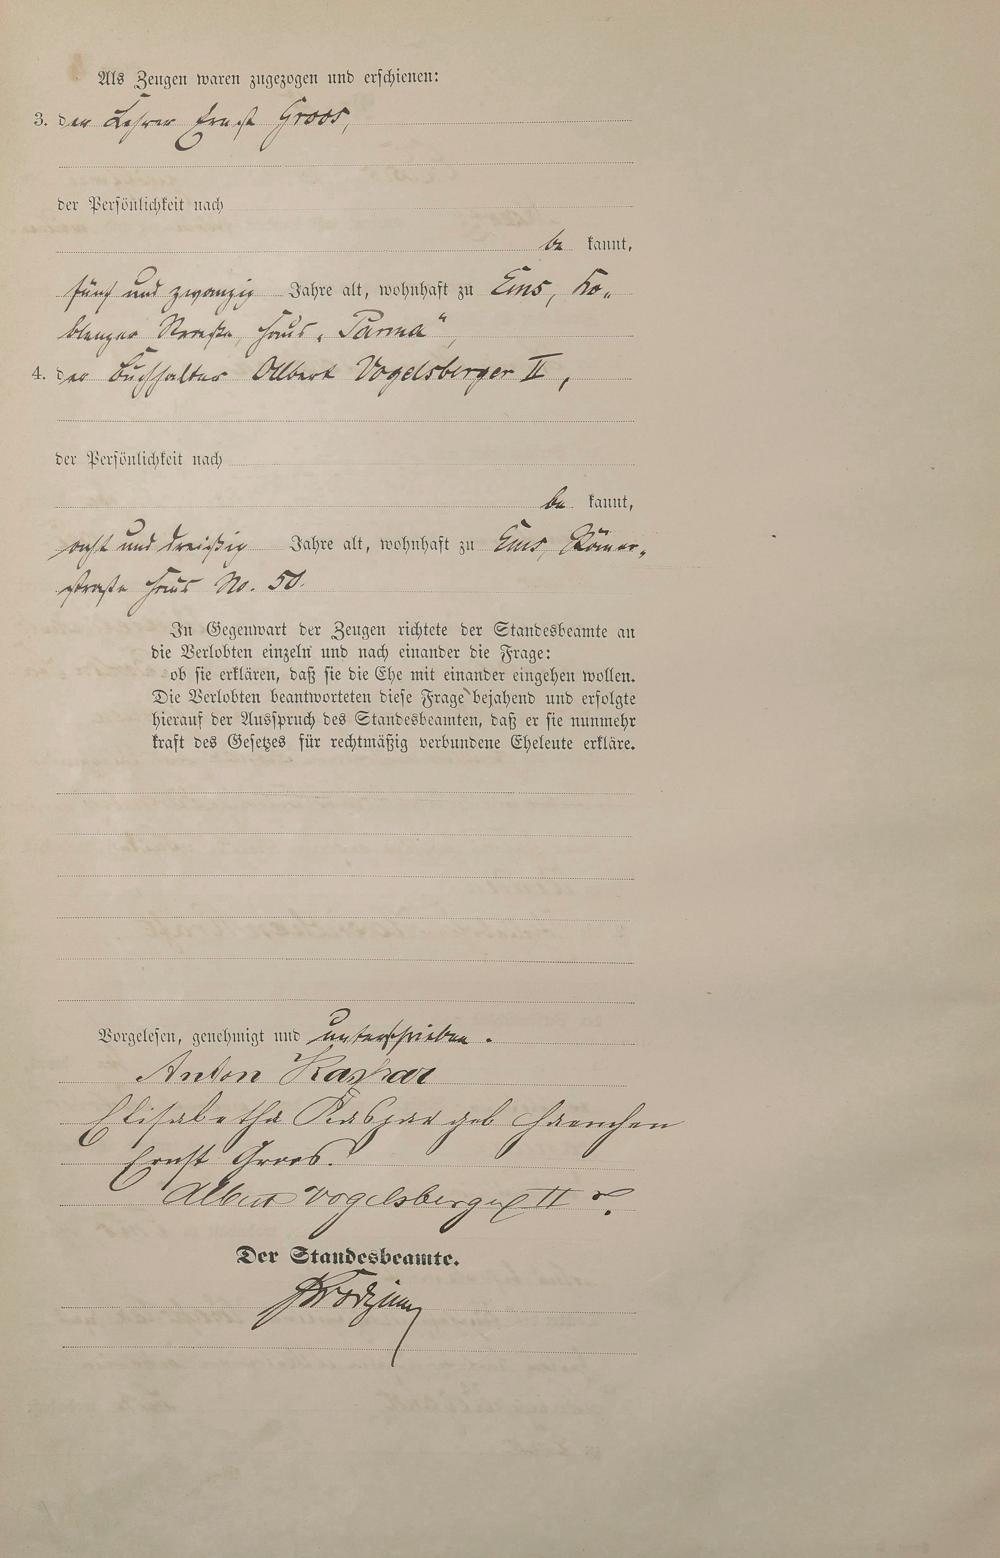 Als Zeugen waren zugezogen und erschienen:
3. der Lehrer Ernst Groos,
der Persönlichkeit nach
be kannt,
fünf und zwanzig Jahre alt, wohnhaft zu Ems, Ko„
blenzer Strasse, Haus „Parma“,
4. der Buchhalter Albert Vogelsberger II,
der Persönlichkeit nach
be kannt,
acht und dreißig Jahre alt, wohnhaft zu Ems, Römer„
straße Haus No. 50.
In Gegenwart der Zeugen richtete der Standesbeamte an
die Verlobten einzeln und nach einander die Frage:
ob sie erklären, daß sie die Ehe mit einander eingehen wollen.
Die Verlobten beantworteten diese Frage bejahend und erfolgte
hierauf der Ausspruch des Standesbeamten, daß er sie nunmehr
kraft des Gesetzes für rechtmäßig verbundene Eheleute erkläre.
Vorgelesen, genehmigt und unterschrieben.
Anton Kaspar
Elisabetha Kaspar geb Haenchen
Ernst Groos.
Albert Vogelsberger II
Der Standesbeamte.